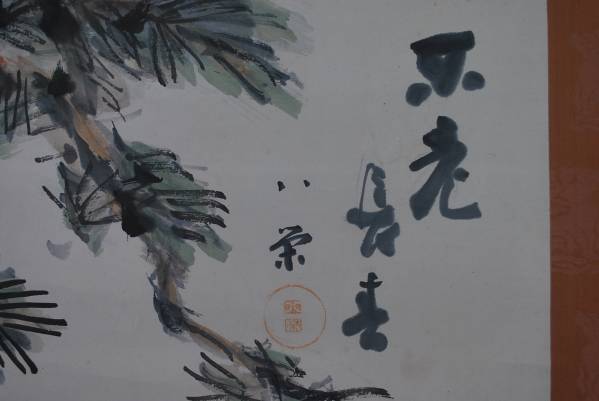 不老
長春
八栄